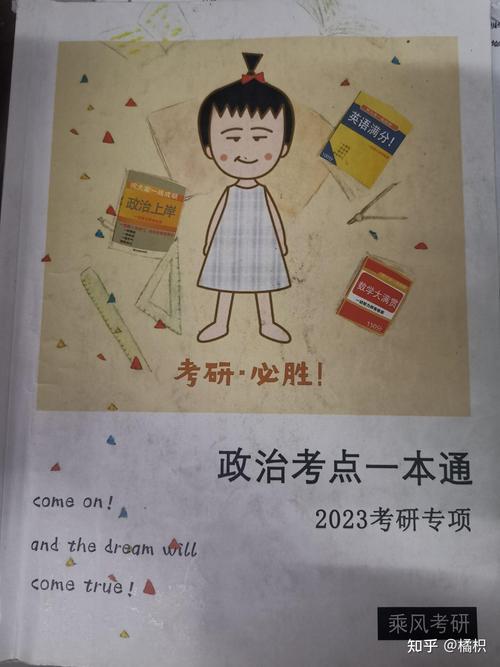 英语满分!
政治上岸
数学大满贯
150分
考研·必胜!
政治考点一本通
2023考研专项
come on!
and the dream will
come true!
乘风考研
知乎 @橘枳